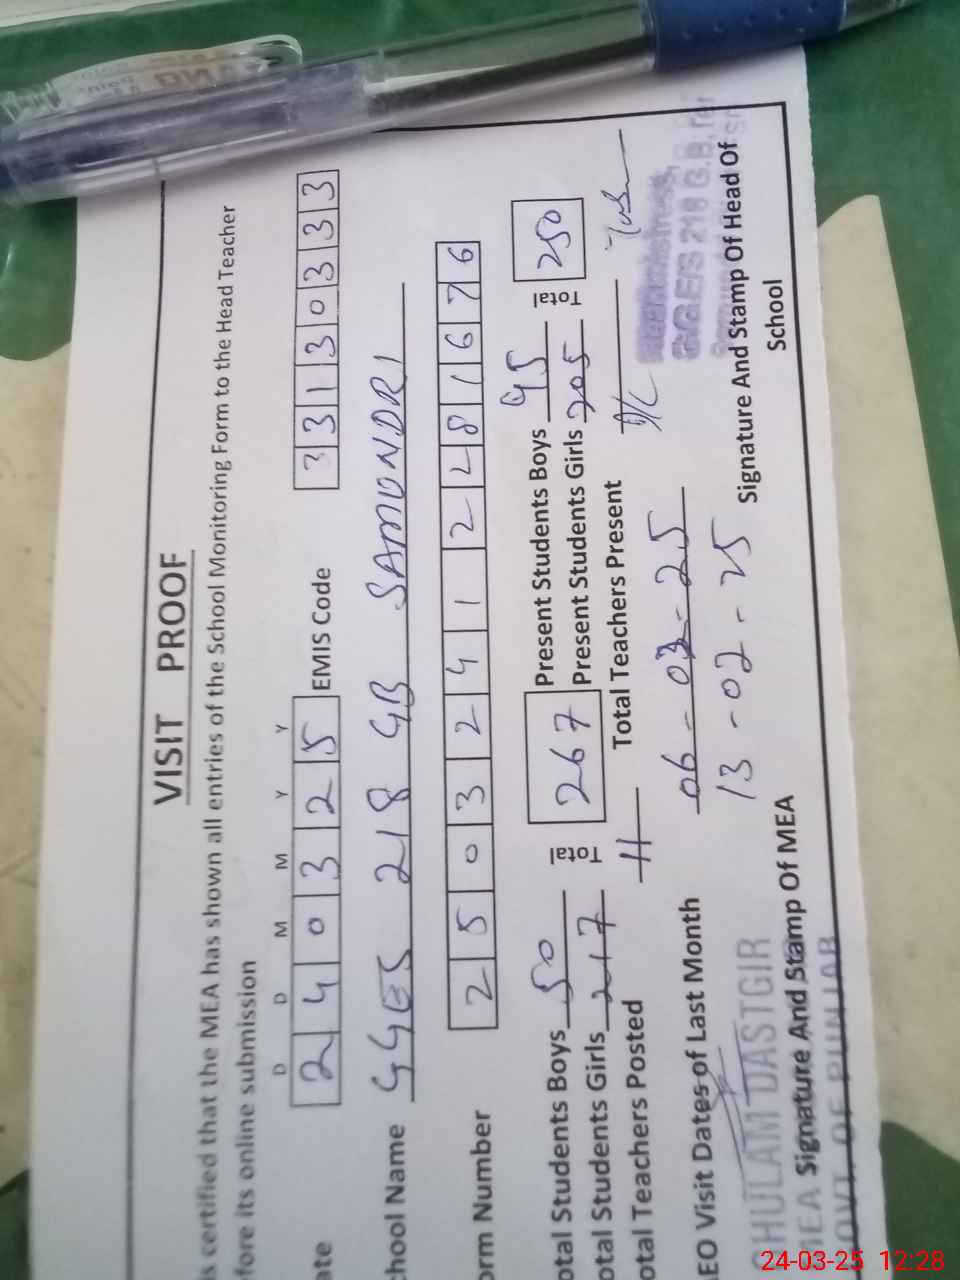 VISIT PROOF
s certified that the MEA has shown all entries of the School Monitoring Form to the Head Teacher
fore its online submission
D D M M Y Y
ate 2 4 0 3 2 5 EMIS Code 3 3 1 3 0 3 3 3
chool Name GGES 218 GB SAMUNDRI
orm Number 2 5 0 3 2 4 1 1 2 2 8 1 6 7 6
otal Students Boys 50 Total 267 Present Students Boys 45 Total 250
otal Students Girls 217 Present Students Girls 205
otal Teachers Posted 11 Total Teachers Present
EO Visit Dates of Last Month 06-02-25
13-02-25
GHULAM DASTGIR
MEA
GOVT. OF PUNJAB
Signature And Stamp Of MEA
Headmistress,
GGES 218 G.B,
Signature And Stamp Of Head Of
School
24-03-25 12:28